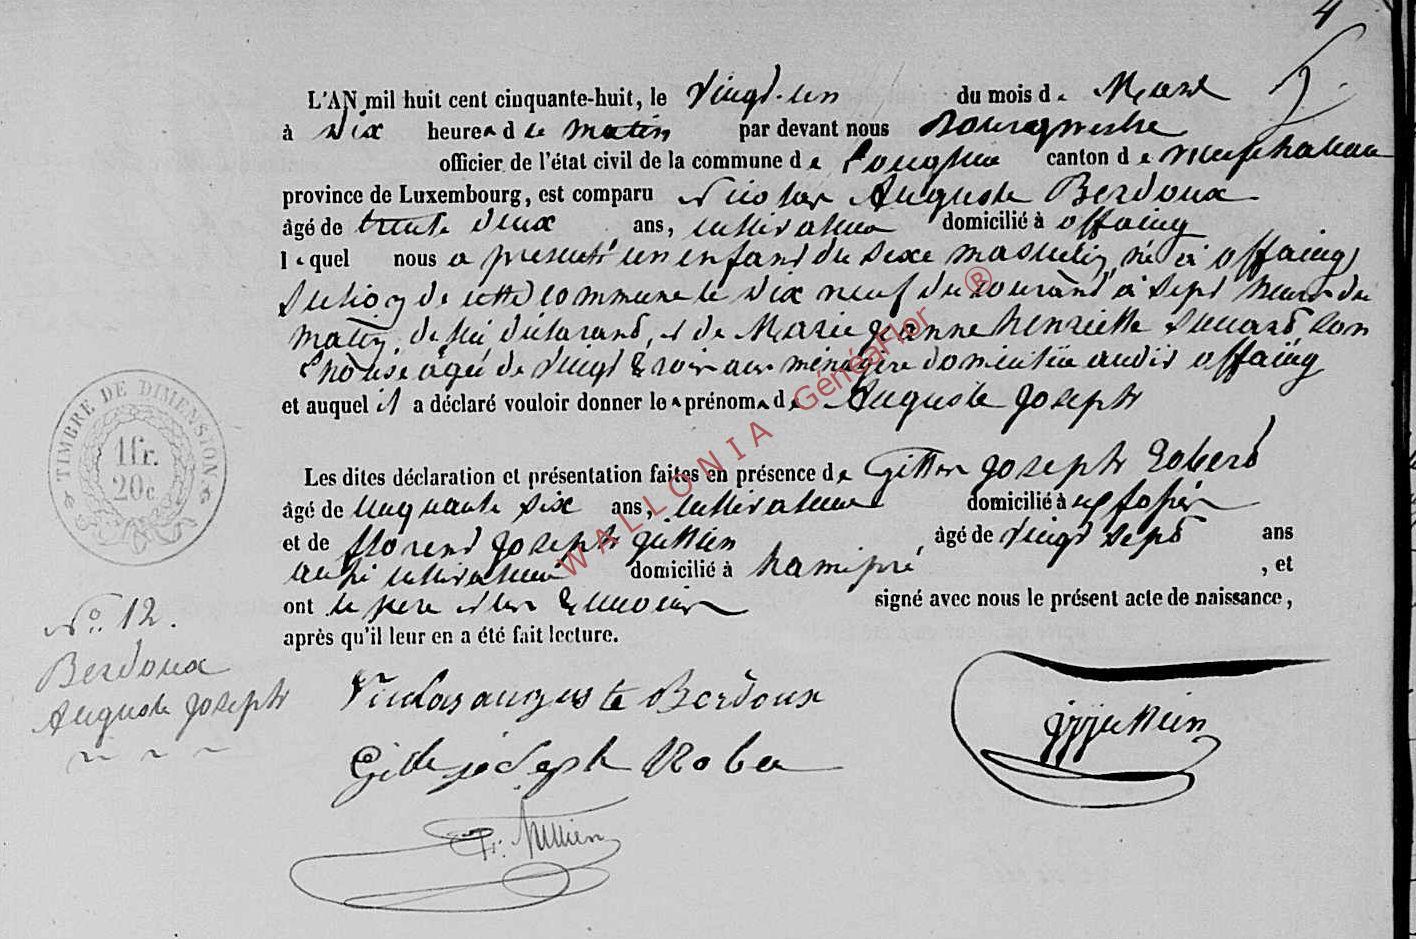 4
L'AN mil huit cent cinquante-huit, le vingt-un du mois de Mars
à dix heures du matin par devant nous Bourgmestre
officier de l'état civil de la commune de Longlier canton de neufchateau
province de Luxembourg, est comparu Nicolas Auguste Berdoux
âgé de trente deux ans, cultivateur domicilié à offaing
lequel nous a présenté un enfant du sexe masculin, né à offaing
section de cette commune le dix neuf du courant à sept heures du
matin, de lui déclarant, et de Marie Jeanne henriette son
Epouse agée de vingt trois ans ménagère domiciliée audit offaing
et auquel il a déclaré vouloir donner les prénoms de Auguste Joseph
Les dites déclaration et présentation faites en présence de Joseph Robert
âgé de cinquante six ans, cultivateur domicilié à
et de florent Joseph Jullien âgé de vingt sept ans
aussi cultivateur domicilié à hamipré, et
ont le père et les témoins signé avec nous le présent acte de naissance,
après qu'il leur en a été fait lecture.
TIMBRE DE DIMENSION
1fr.
20c
No. 12.
Berdoux
Auguste Joseph
Nicolas auguste Berdoux
joseph Rober
Jullien
Jullien
WALLONIA GénéaFlor ®